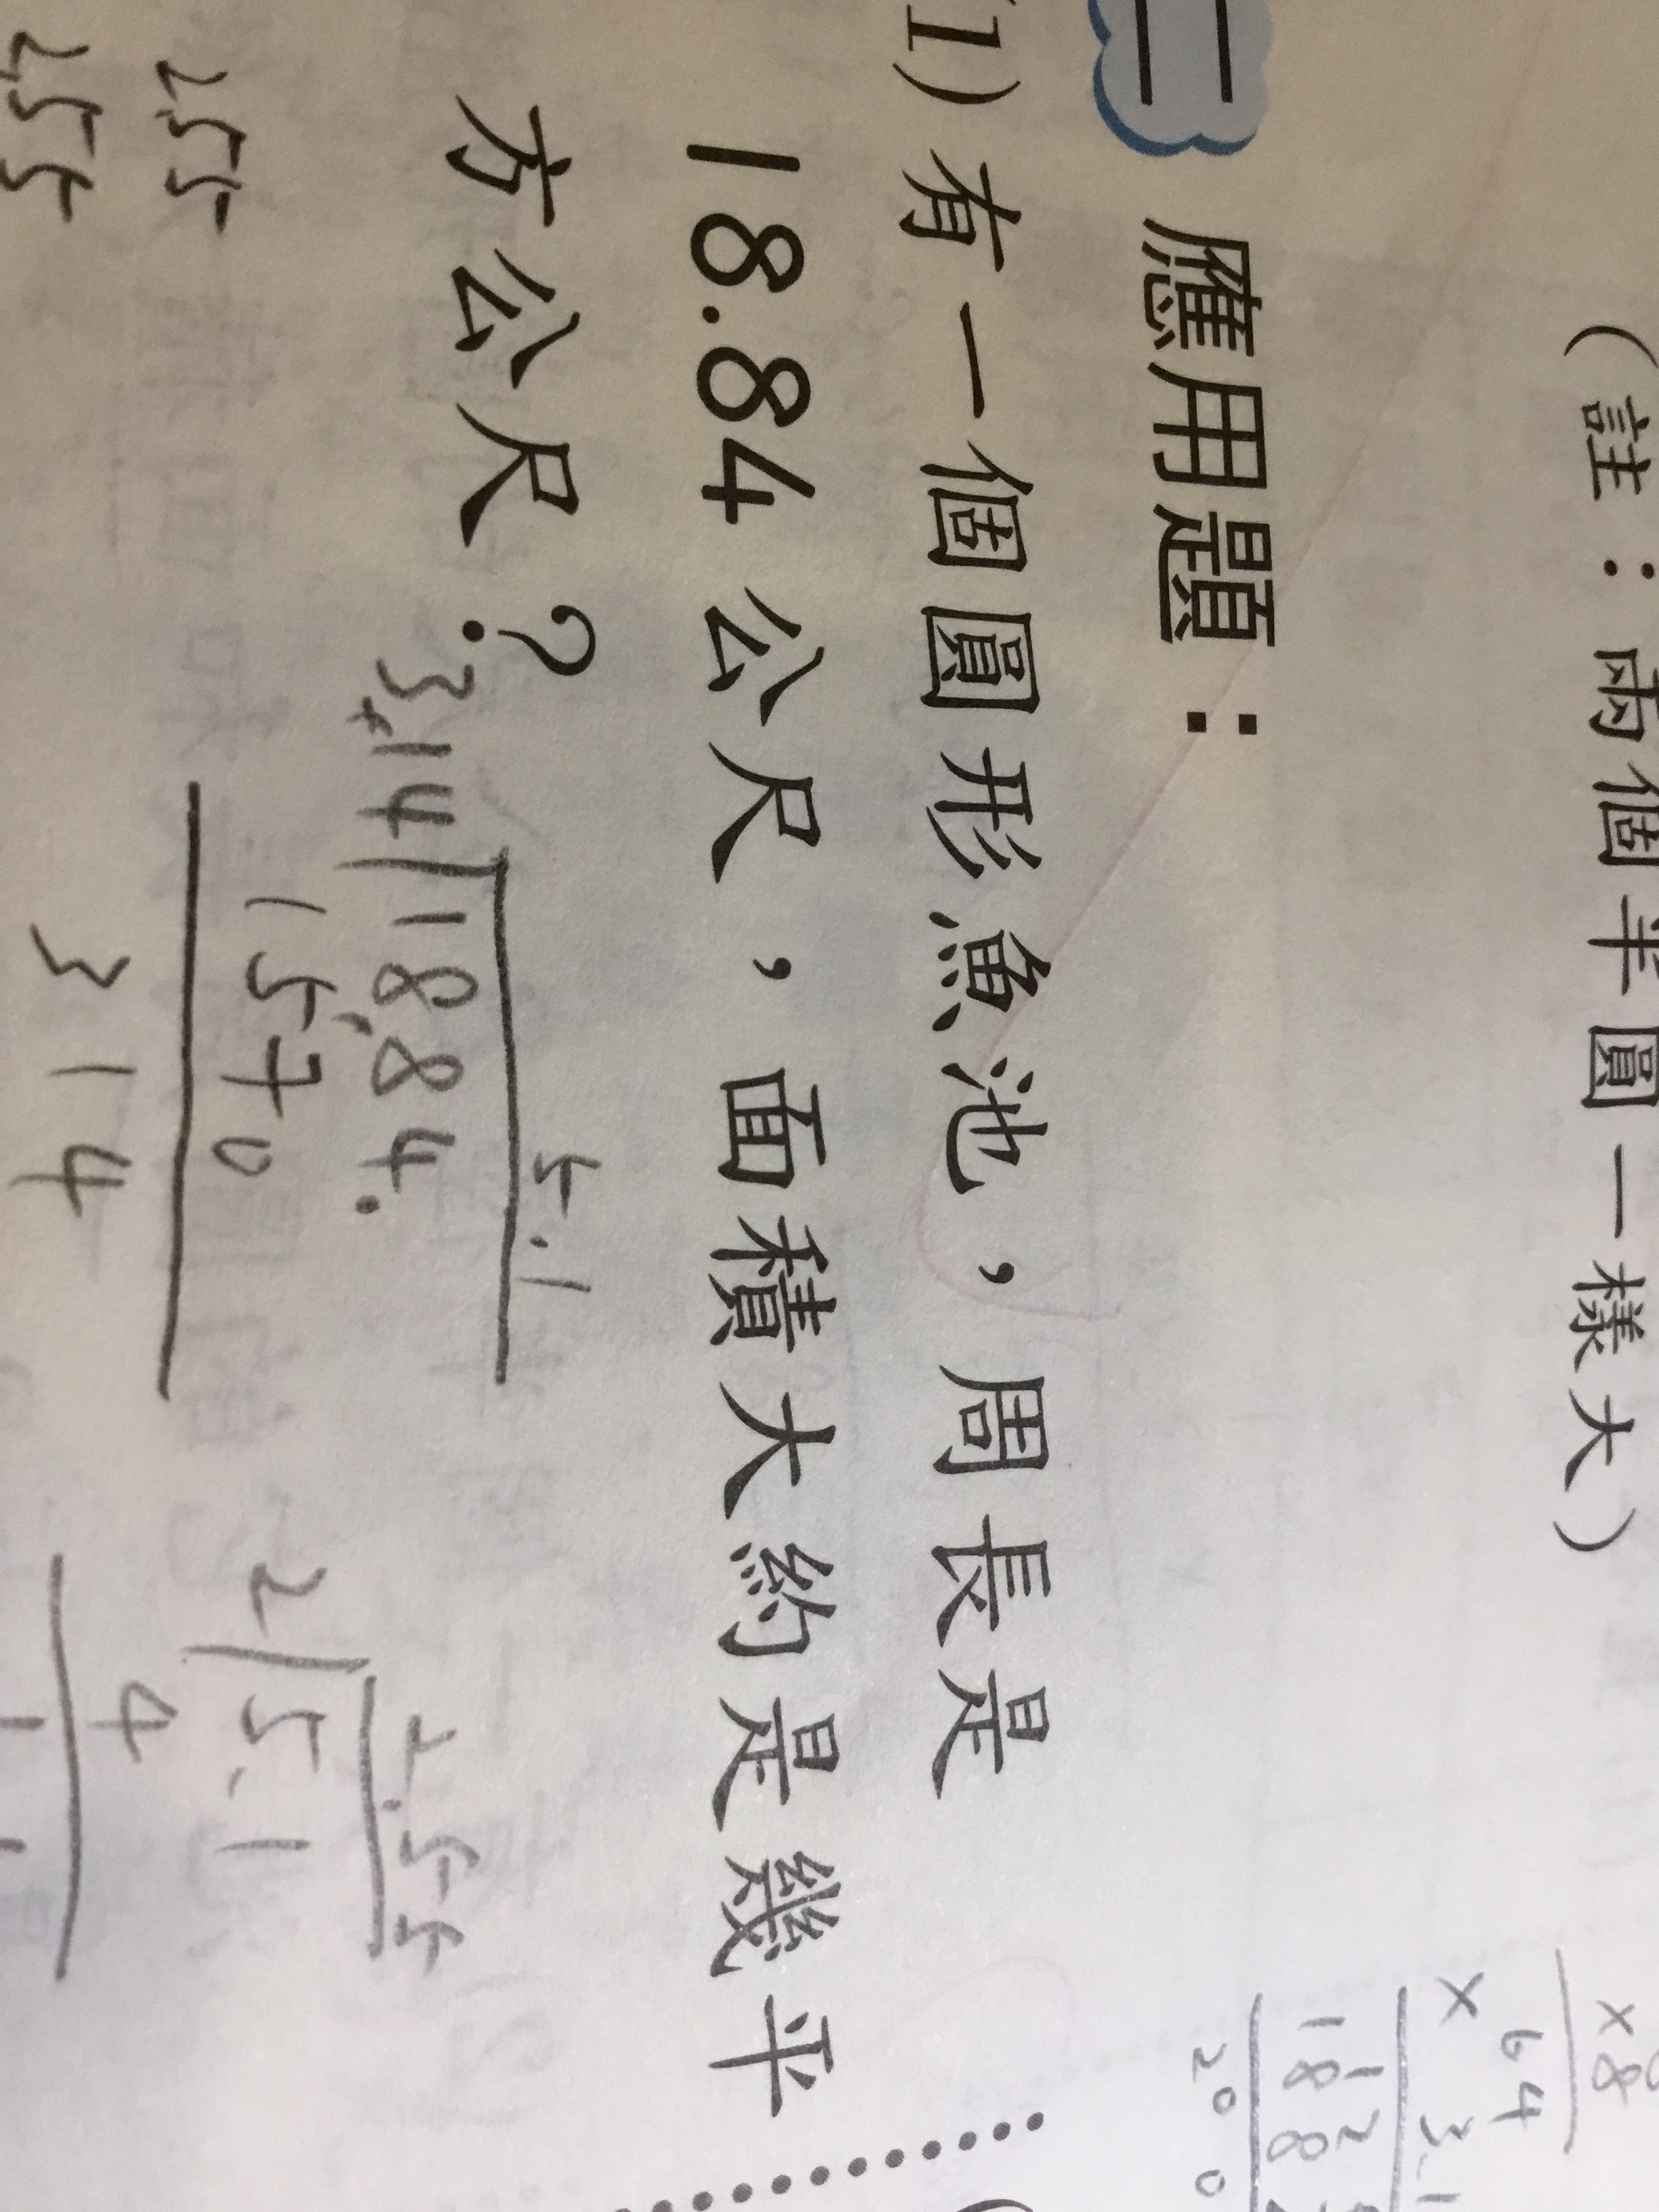 (註：兩個半圓一樣大)
二 應用題：
(1) 有一個圓形魚池，周長是
18.84 公尺，面積大約是幾平
方公尺？
5.1
3.14 18.84
1570
314
2.55
2 5.1
4
1 1
255
255
×8
64
× 3.1
1
2
188
200